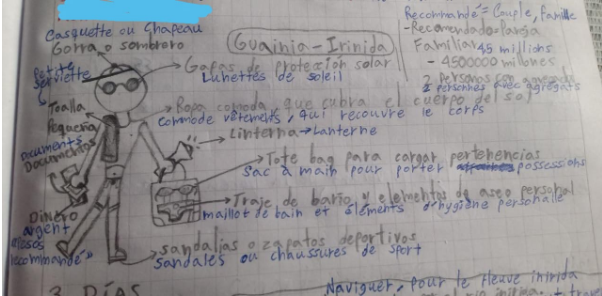 Casquette ou Chapeau
Gorra o sombrero
Guainia-Irinida
Recommandé= Couple, famille
-Recomendado=Pareja
Familiar 45 millions
- 4500000 millones
2 Personas con
2 personnes avec agrégats
Gafas de protección solar
Luhettes de soleil
Petite serviette
Toalla
Pequeña
Ropa comoda, que cubra el cuerpo del sol
commode vêtements, qui recouvre le corps
Linterna→Lanterne
Documents
Documentos
Tote bag para cargar pertenencias
sac à main pour porter possessions
Traje de baño y elementos de aseo personal
maillot de bain et éléments d'hygiène personalle
Dinero
argent
recommandé"
sandalias o zapatos deportivos
sandales ou chaussures de sport
3 DÍAS
Naviguer, pour le fleuve inirida